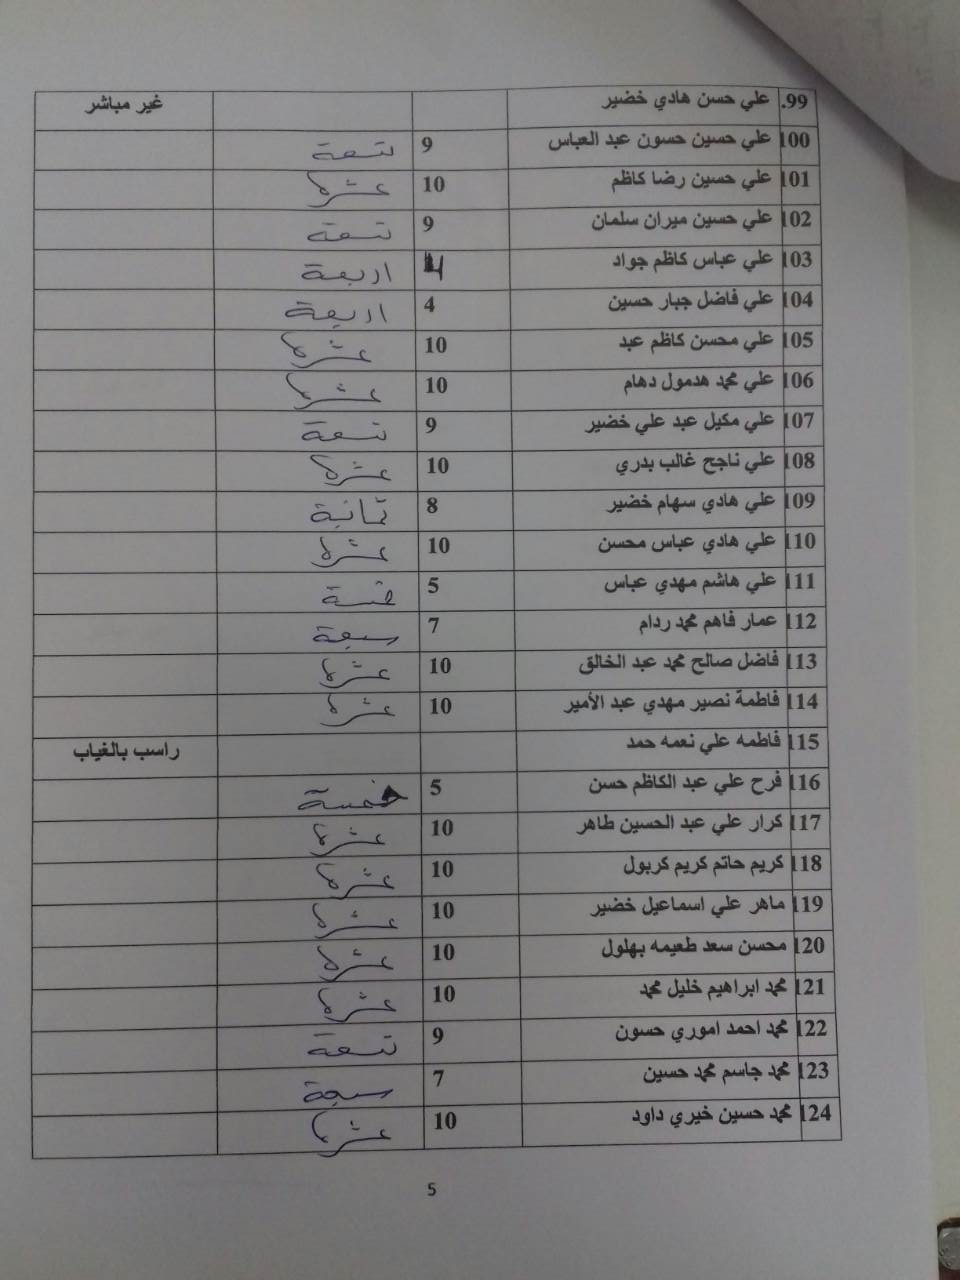 99. علي حسن هادي خضير غير مباشر
100 علي حسين حسون عبد العباس 9 تسعة
101 علي حسين رضا كاظم 10 عشرة
102 علي حسين ميران سلمان 9 تسعة
103 علي عباس كاظم جواد 4 اربعة
104 علي فاضل جبار حسين 4 اربعة
105 علي محسن كاظم عبد 10 عشرة
106 علي محمد هدمول دهام 10 عشرة
107 علي مكيل عبد علي خضير 9 تسعة
108 علي ناجح غالب بدري 10 عشرة
109 علي هادي سهام خضير 8 ثمانية
110 علي هادي عباس محسن 10 عشرة
111 علي هاشم مهدي عباس 5 خمسة
112 عمار فاهم محمد ردام 7 سبعة
113 فاضل صالح محمد عبد الخالق 10 عشرة
114 فاطمة نصير مهدي عبد الأمير 10 عشرة
115 فاطمه علي نعمه حمد راسب بالغياب
116 فرح علي عبد الكاظم حسن 5 خمسة
117 كرار علي عبد الحسين طاهر 10 عشرة
118 كريم حاتم كريم كربول 10 عشرة
119 ماهر علي اسماعيل خضير 10 عشرة
120 محسن سعد طعيمه بهلول 10 عشرة
121 محمد ابراهيم خليل محمد 10 عشرة
122 محمد احمد اموري حسون 9 تسعة
123 محمد جاسم محمد حسين 7 سبعة
124 محمد حسين خيري داود 10 عشرة
5